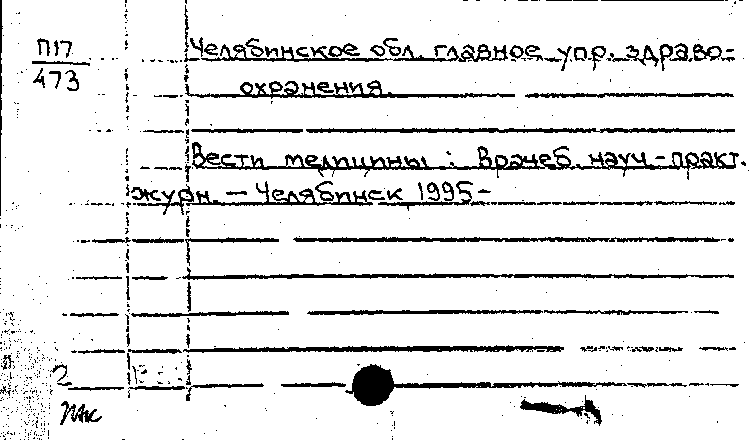 П17
473
Челябинское обл. главное упр. здраво-
охранения.
Вести медицины : Врачеб. науч-практ.
журн. — Челябинск 1995-
2